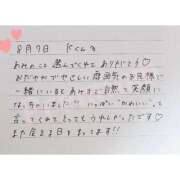 8月7日 Kくん
あみのこと選んでくれて ありがとう♡
おだやかでやさしい 雰囲気のお兄様で
一緒にいると あみまで自然と笑顔に
なっちゃいました!! いっぱい"かわいい"って
言ってくれて とってもうれしかったです♡
また 会える日を まってます!!